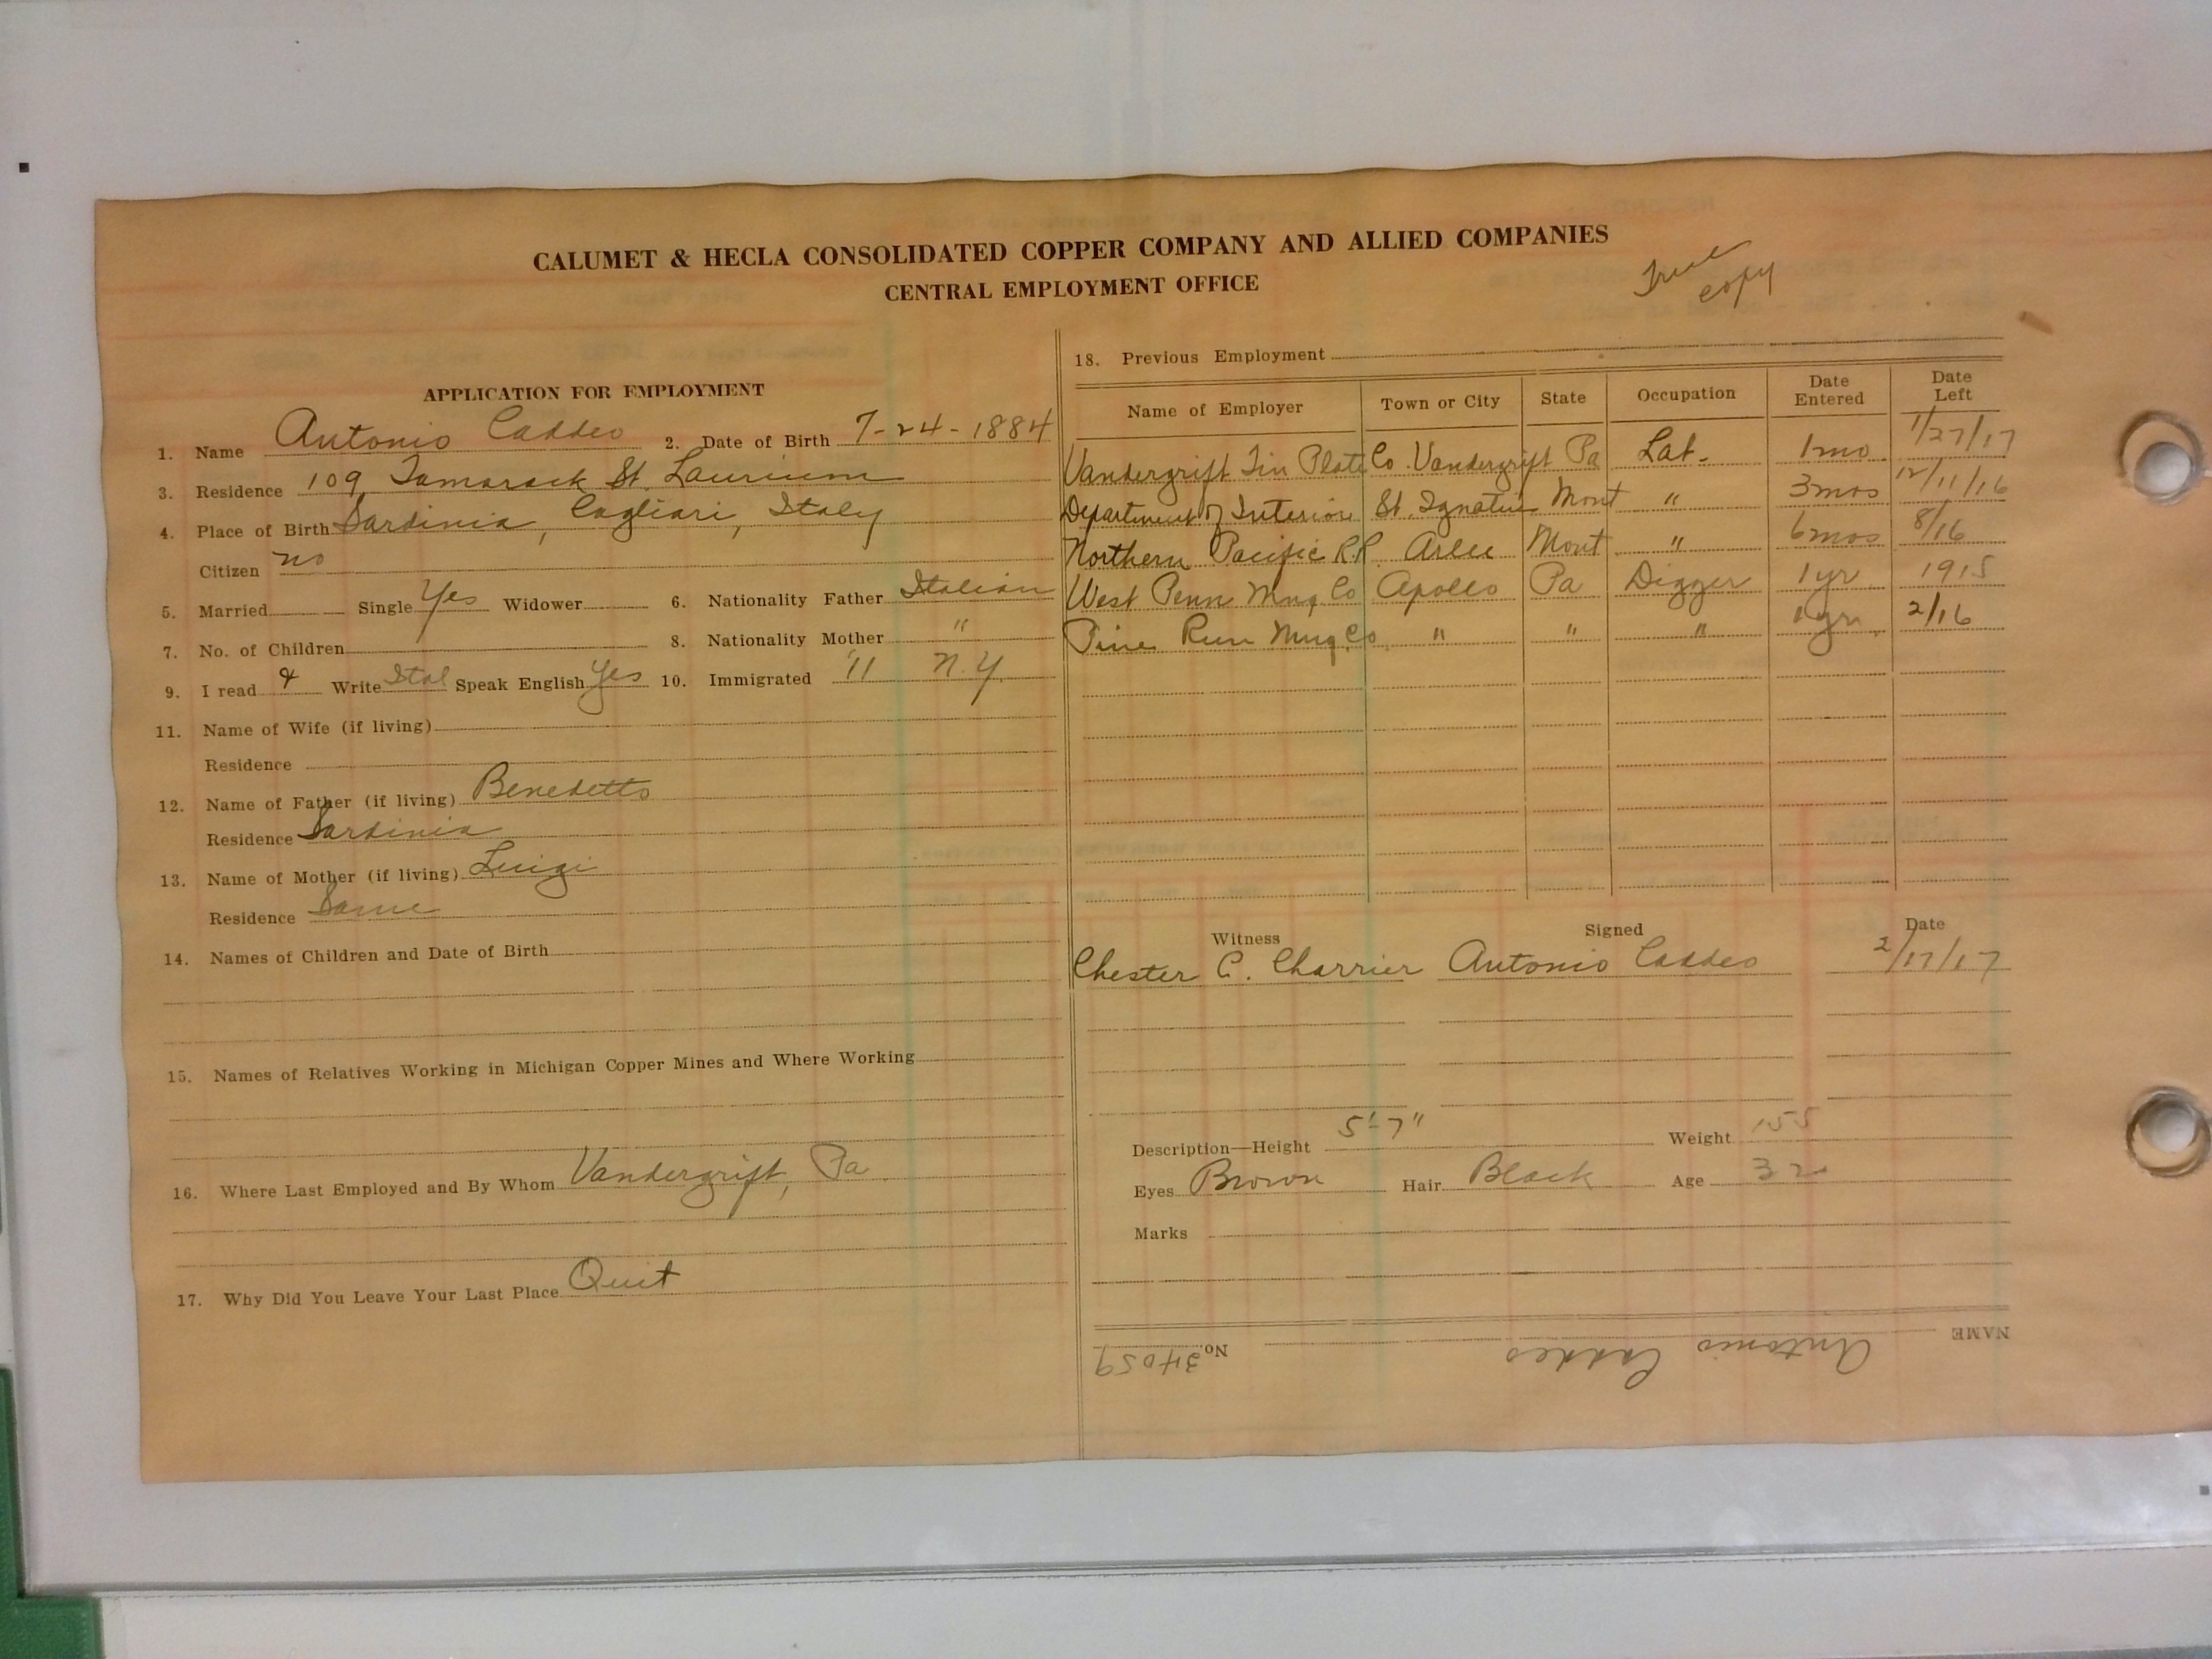 CALUMET & HECLA CONSOLIDATED COPPER COMPANY AND ALLIED COMPANIES
CENTRAL EMPLOYMENT OFFICE
True copy
APPLICATION FOR EMPLOYMENT
1. Name Antonio Caddeo 2. Date of Birth 7-24-1884
3. Residence 109 Tamarack St. Laurium
4. Place of Birth Sardinia, Cagliari, Italy
Citizen no
5. Married Single Yes Widower 6. Nationality Father Italian
7. No. of Children 8. Nationality Mother "
9. I read & Write Ital Speak English Yes 10. Immigrated '11 N.Y.
11. Name of Wife (if living)
Residence
12. Name of Father (if living) Benedetto
Residence Sardinia
13. Name of Mother (if living) Luigi
Residence Same
14. Names of Children and Date of Birth
15. Names of Relatives Working in Michigan Copper Mines and Where Working
16. Where Last Employed and By Whom Vandergrift, Pa.
17. Why Did You Leave Your Last Place Quit
18. Previous Employment
Name of Employer Town or City State Occupation Date Entered Date Left
Vandergrift Tin Plate Co. Vandergrift Pa Lab. 1 mo 1/27/17
Department of Interior St. Ignatius Mont " 3 mos 12/11/16
Northern Pacific R.R. Arlee Mont " 6 mos 8/16
West Penn Mng Co Apollo Pa Digger 1 yr 1915
Pine Run Mng. Co. " " " 1 yr. 2/16
Witness Signed Date
Chester C. Charrier Antonio Caddeo 2/17/17
Description—Height 5'-7" Weight 155
Eyes Brown Hair Black Age 32
Marks
NAME Antonio Caddeo No. 34059